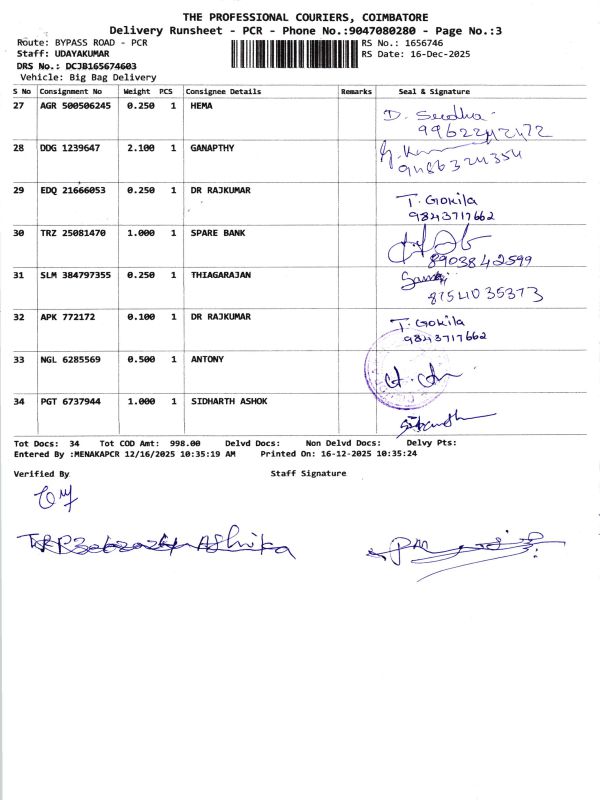 THE PROFESSIONAL COURIERS, COIMBATORE
Delivery Runsheet - PCR - Phone No.:9047080280 - Page No.:3
Route: BYPASS ROAD - PCR RS No.: 1656746
Staff: UDAYAKUMAR RS Date: 16-Dec-2025
DRS No.: DCJB165674603
Vehicle: Big Bag Delivery
S No Consignment No Weight PCS Consignee Details Remarks Seal & Signature
27 AGR 500506245 0.250 1 HEMA
D.
28 DDG 1239647 2.100 1 GANAPTHY
9486324354
29 EDQ 21666053 0.250 1 DR RAJKUMAR
T. Gokila
9843717662
30 TRZ 25081470 1.000 1 SPARE BANK
8903842599
31 SLM 384797355 0.250 1 THIAGARAJAN
8754035373
32 APK 772172 0.100 1 DR RAJKUMAR
T. Gokila
9843717662
33 NGL 6285569 0.500 1 ANTONY
34 PGT 6737944 1.000 1 SIDHARTH ASHOK
Tot Docs: 34 Tot COD Amt: 998.00 Delvd Docs: Non Delvd Docs: Delvy Pts:
Entered By :MENAKAPCR 12/16/2025 10:35:19 AM Printed On: 16-12-2025 10:35:24
Verified By Staff Signature